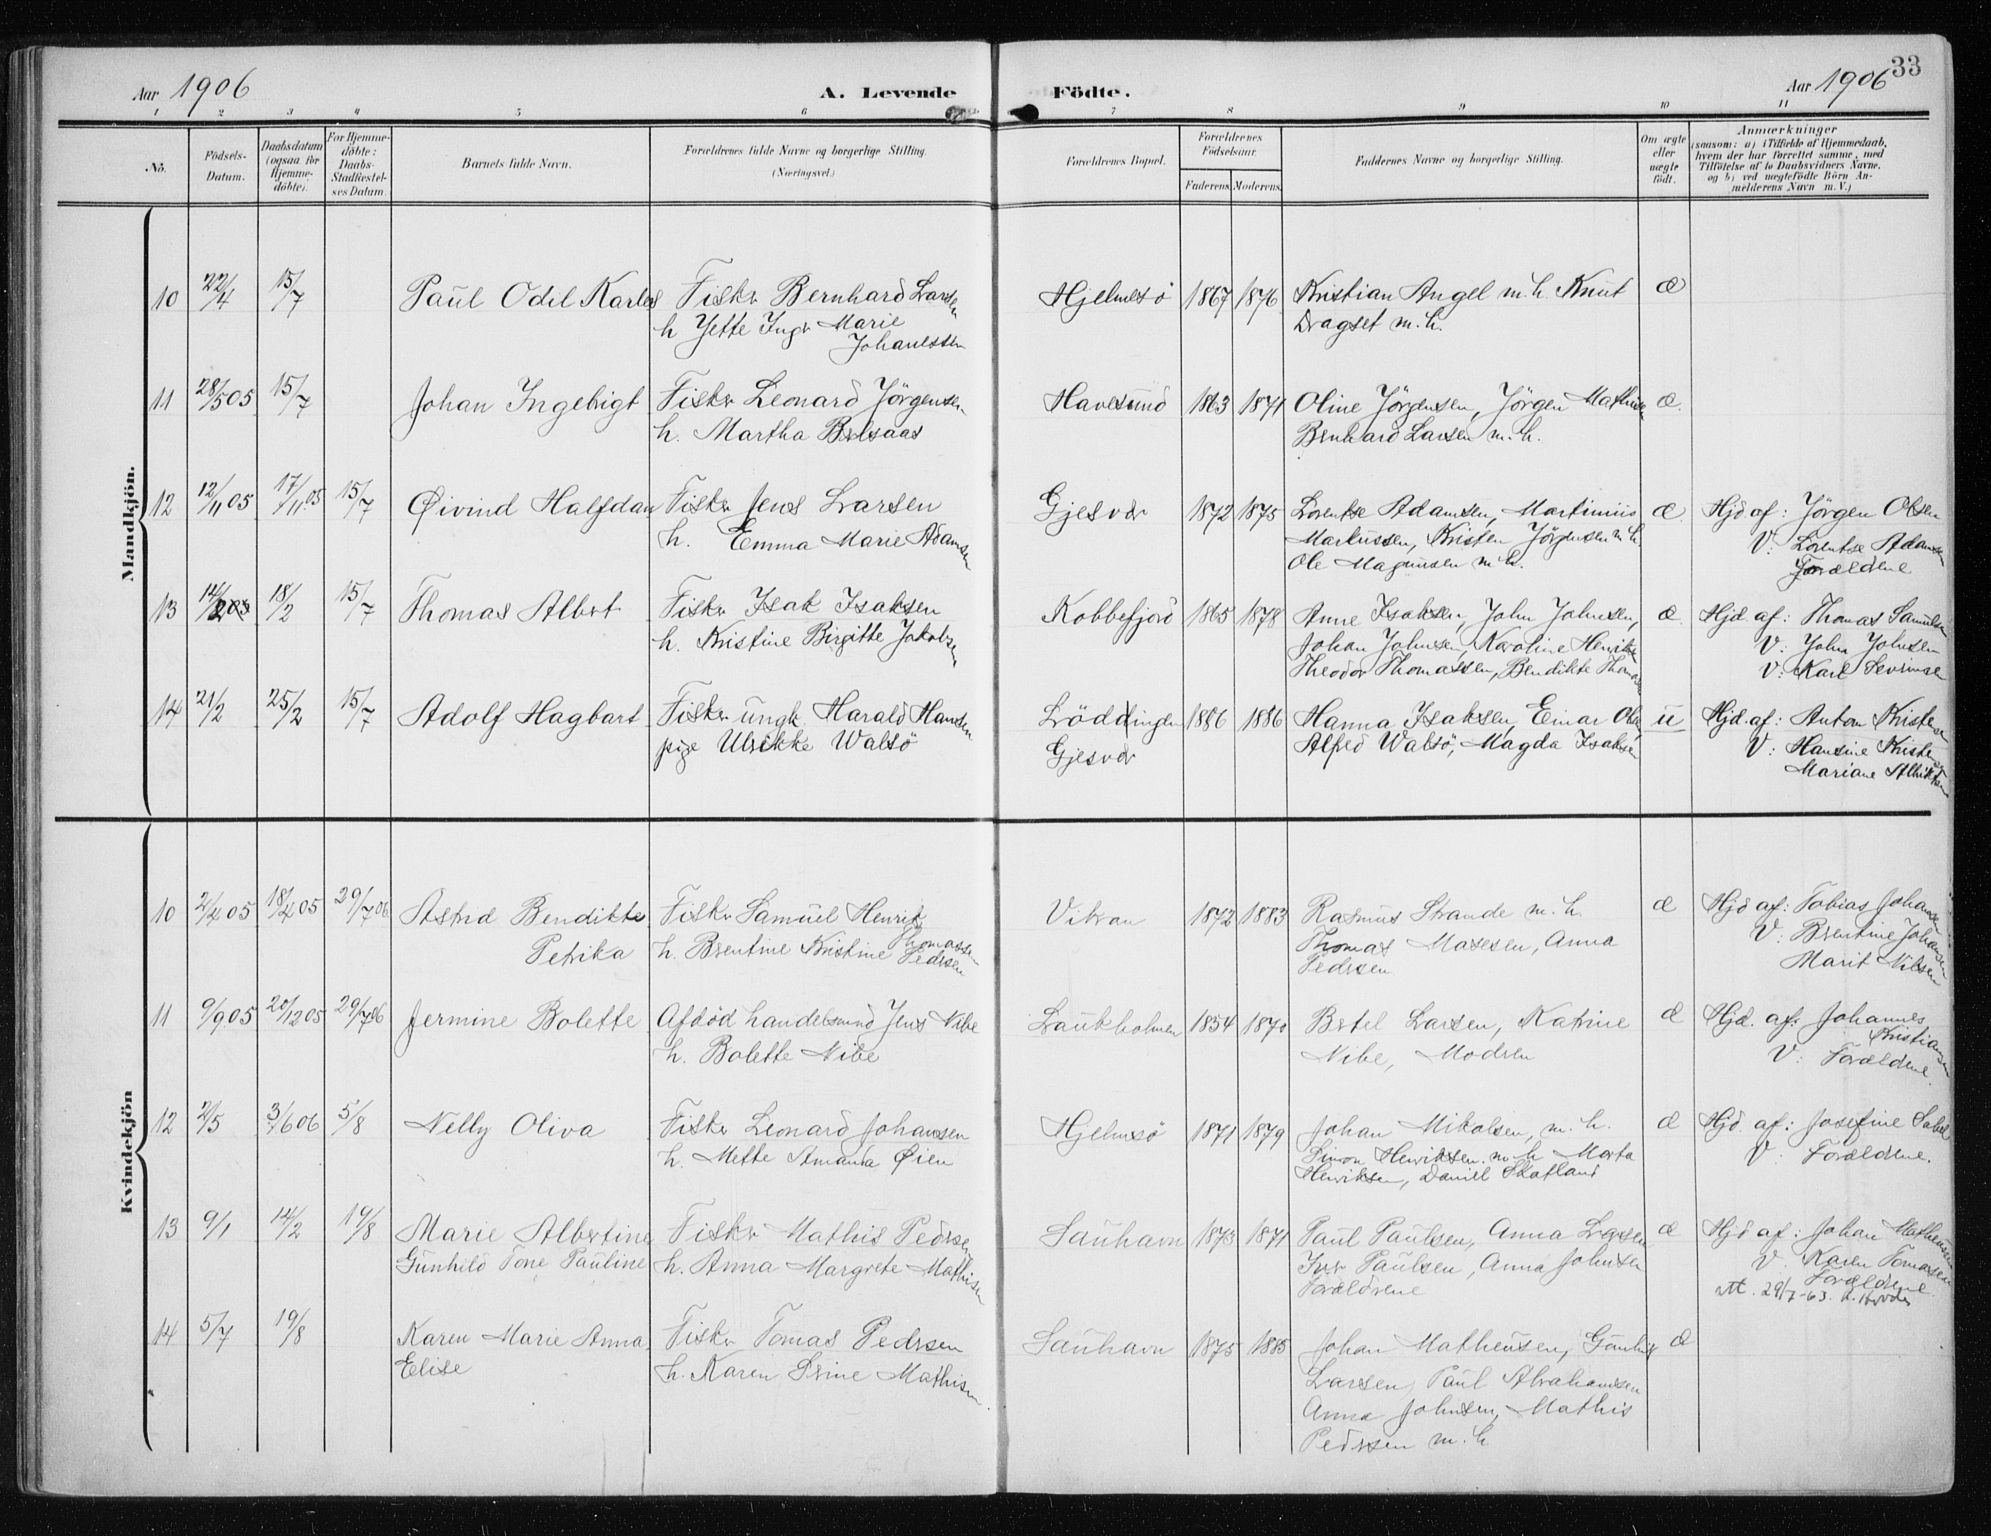 33
Aar 1906 A. Levende Födte. Aar 1906
1 2 3 4 5 6 7 8 9 10 11
No. Födsels-Datum. Daabsdatum (ogsaa for Hjemme-döbte). For Hjemme-döbte: Daabs-Stadfæstel-ses Datum. Barnets fulde Navn. Forældrenes fulde Navne og borgerlige Stilling. (Næringsvei.) Forældrenes Bopæl. Forældrenes Födselsaar. Faderens. Moderens. Faddernes Navne og borgerlige Stilling. Om ægte eller uægte födt. Anmærkninger (saasom: a) i Tilfælde af Hjemmedaab, hvem der har forrettet samme, med Tilföielse af to Daabsvidners Navne, og b) ved uægtefödte Börn An-melderens Navn m. V.)
Mandkjön.
10 22/4 15/7 Paul Odil Karlos Fisker Bernhard Larsen Hjelmsö 1867 1876 Kristian Angel m. h. Knut æ
h Jette Inger Marie Dragset m. h.
Johanessen
11 28/5 05 15/7 Johan Ingebrigt Fisker Leonard Jörgensen Havesund 1863 1871 Oline Jörgensen, Jörgen Mathisen æ.
h. Martha Bersaas Bernhard Larsen m. h.
12 12/11 05 17/11 05 15/7 Øivind Halfdan Fisker Jens Larsen Gjesver 1872 1875 Lorentse Adamsen, Martinius æ Hjd. af: Jörgen Olsen
h. Emma Marie Adamsen Markussen, Kristen Jörgensen m. h. V: Lorentse Adamsen
Ole Magnusen m. h. Forældrene
13 14/2 18/2 15/7 Thomas Albert Fisker Isak Isaksen Kobbefjord 1865 1878 Anne Isaksen, John Johnsen, æ Hjd. af: Thomas Samuelsen
h. Kristine Birgitte Jakobsen Johan Johnsen, Karoline Henriksen V: John Johnsen
Theodor Thomassen, Bendikte Thomassen V: Karl Severinsen
14 21/2 25/2 15/7 Adolf Hagbart Fisker ungk. Harald Hansen Löddingen 1886 1886 Hanna Isaksen, Einar Olsen u Hjd. af: Anton Kristensen
pige Ulrikke Walsö Gjesver Alfred Walsö, Magda Isaksen V: Hansine Kristensen
Mariane Albriktsen
Kvindekjön
10 2/4 05 18/4 05 29/7 06 Astrid Bendikte Fisker Samuel Henrik Thomassen Vikran 1872 1883 Rasmus Strande m. h. æ Hjd af: Tobias Johansen
Petrika h. Brentine Kristine Pedersen Thomas Masesen, Anna V: Brentine Johansen
Pedersen Marit Nilsen
11 9/9 05 20/12 05 29/7 06 Jermine Bolette Afdöd handelsmand Jens Nibe Laukholmen 1854 1870 Bertel Larsen, Katrine æ Hjd. af: Johannes Kristiansen
h. Bolette Nibe Nibe, Moderen V: Forældrene.
12 2/5 3/6 06 5/8 Nelly Oliva Fisker Leonard Johansen Hjelmsö 1871 1879 Johan Mikalsen, m. h. æ Hjd. af: Josefine Sabel
h. Mette Amanda Øien Simon Henriksen m. h Marta V: Forældrene.
Henriksen, Daniel Skatland
13 9/1 14/2 19/8 Marie Albertine Fisker Mathis Pedersen Sauhavn 1873 1871 Paul Paulsen, Anna Larsen æ Hjd af: Johan Matheusen
Gunhild Tone Pauline h. Anna Margrete Mathisen Iver Paulsen, Anna Johnsen V. Karen Tomasen
Forældrene Forældrene
Att. 29/7-63.
14 5/7 19/8 Karen Marie Anna Fisker Tomas Pedersen Sauhavn 1875 1885 Johan Matheusen, Gunhild æ
Elise h. Karen Serine Mathisen Larsen, Paul Abrahamsen
Anna Johnsen, Mathis
Pedersen m. h